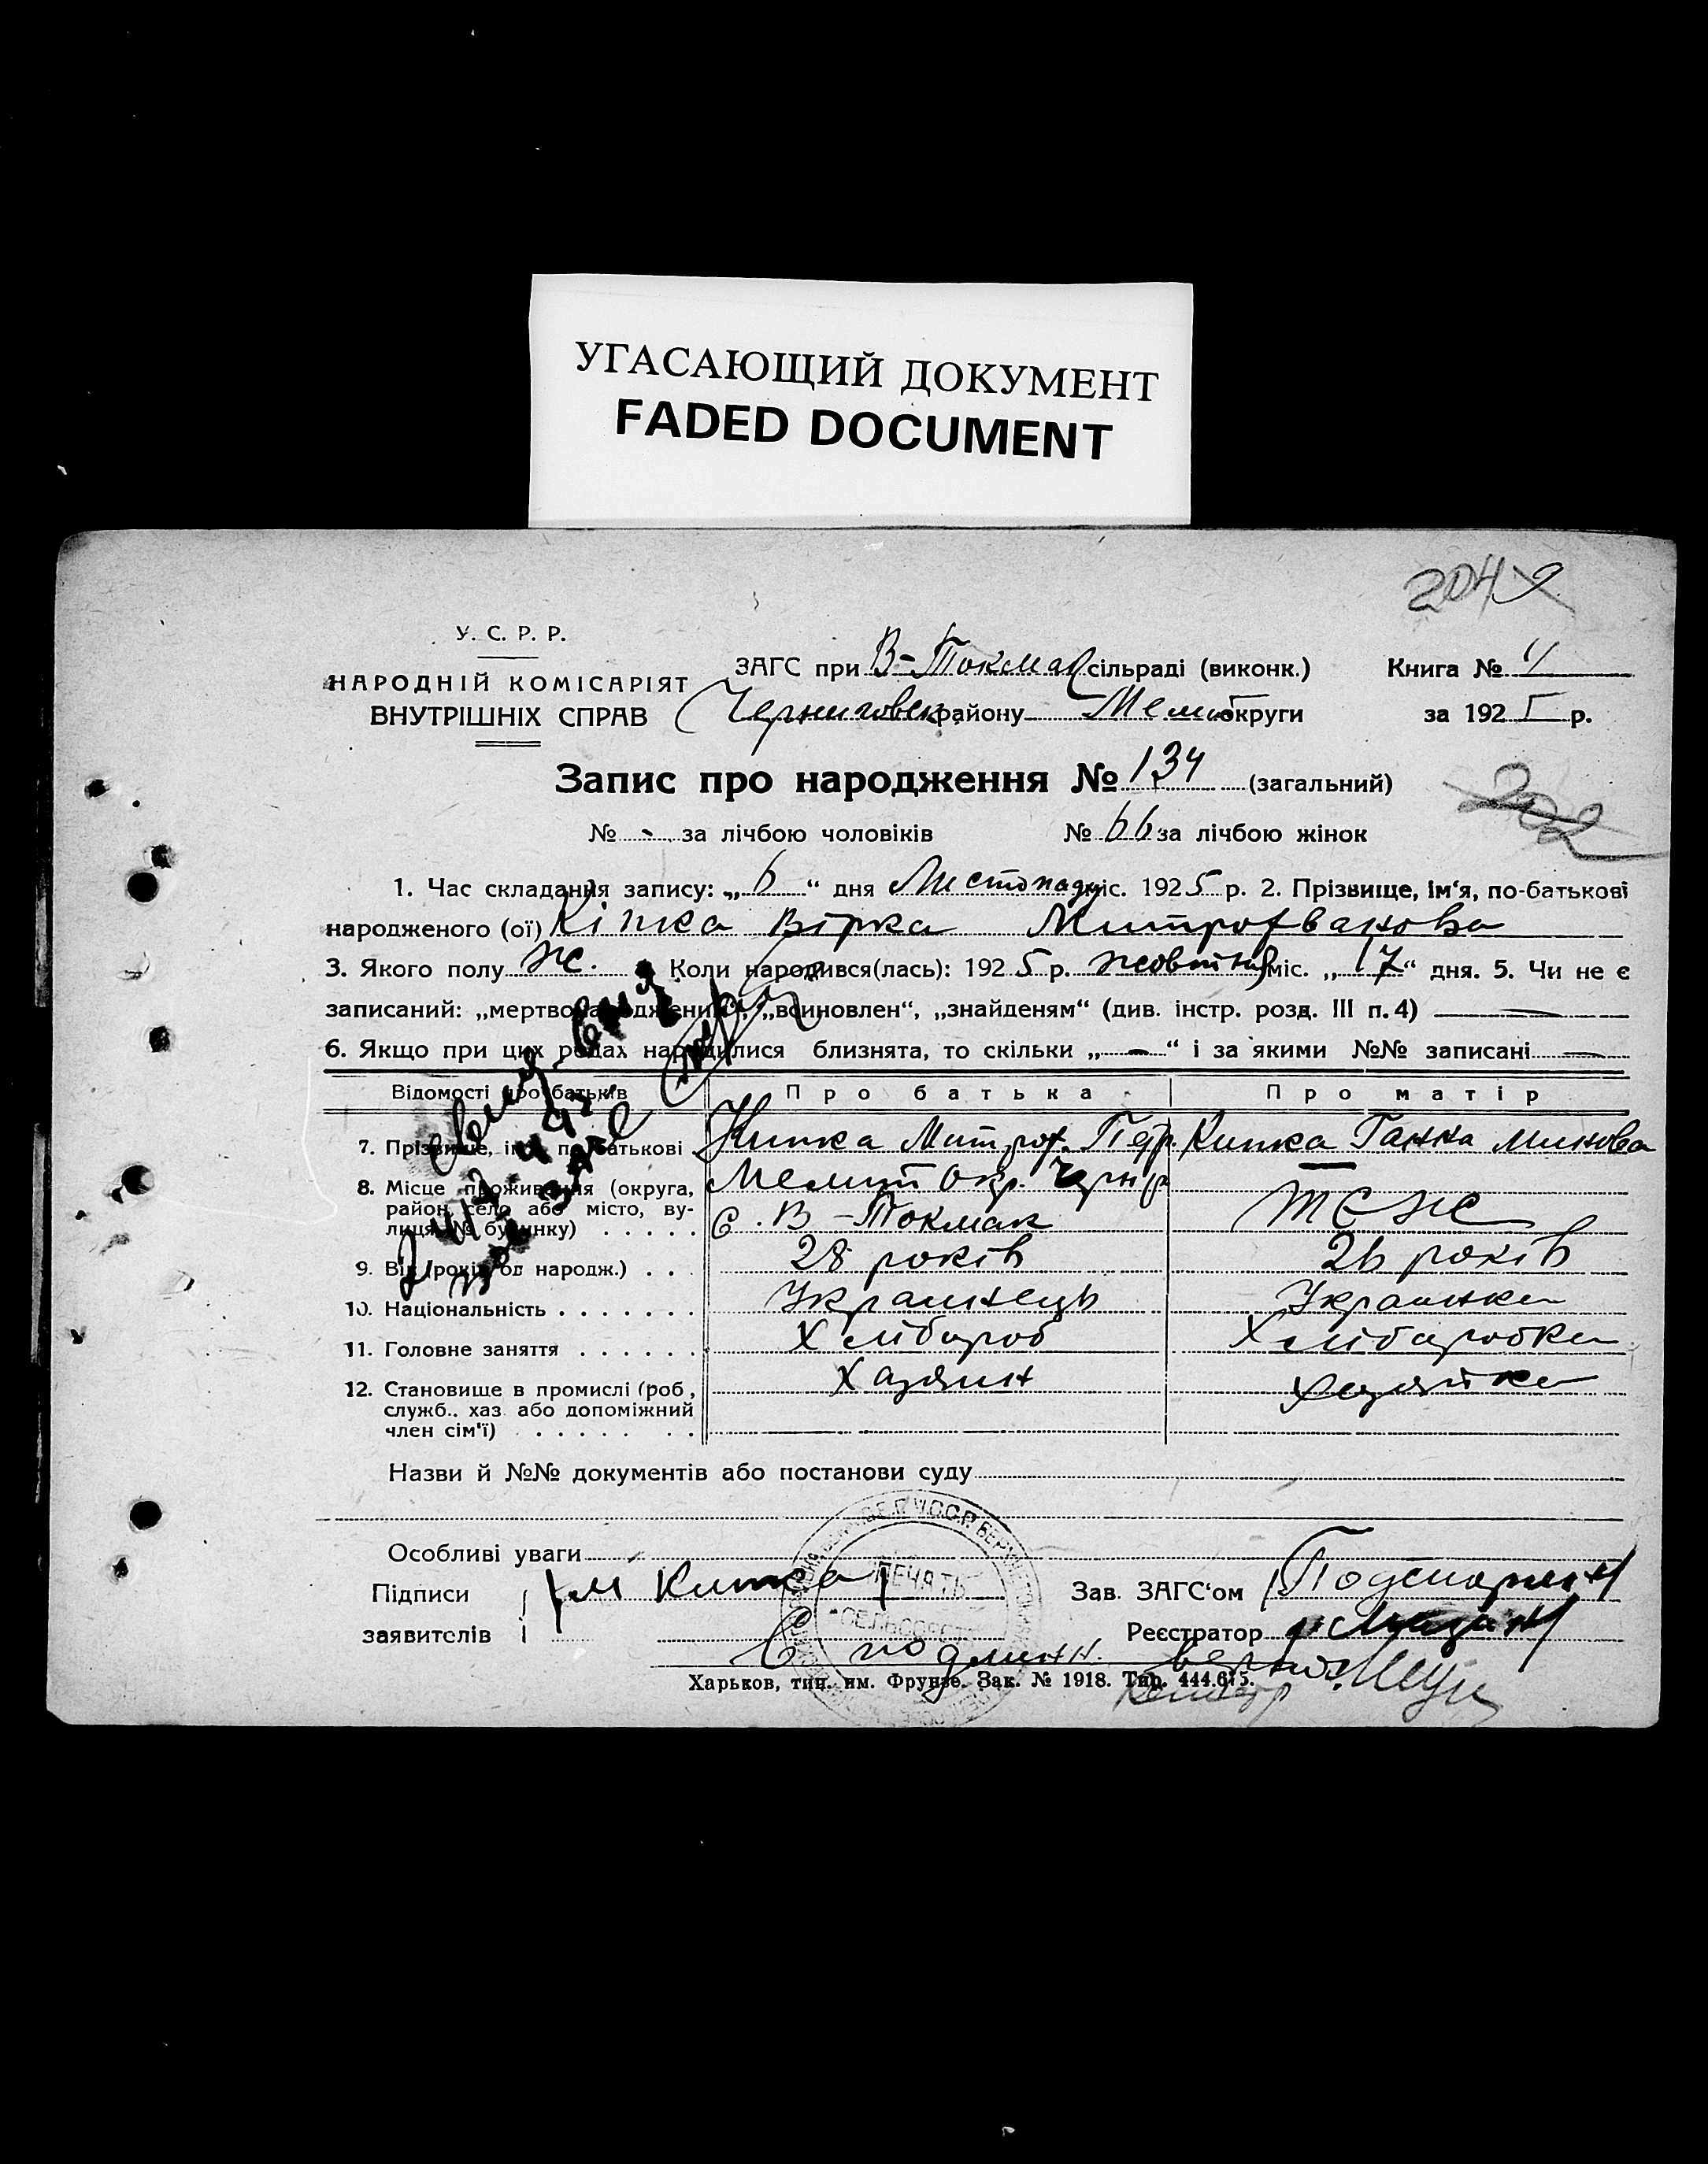 УГАСАЮЩИЙ ДОКУМЕНТ
FADED DOCUMENT
204
У. С. Р. Р.
НАРОДНІЙ КОМІСАРІЯТ
ВНУТРІШНІХ СПРАВ
ЗАГС при В-Токмак сільраді (виконк.) Книга №
Черниговск району Мелит округи за 1925 р.
Запис про народження № 134 (загальний)
202
№ - за лічбою чоловіків № 66 за лічбою жінок
1. Час складання запису: „6“ дня Листопаду міс. 1925 р. 2. Прізвище, ім‘я, по-батькові
народженого (ої) Кіпка Вірка Митрофванова
3. Якого полу ж. Коли народився(лась): 1925 р. жовтня міс. „17“ дня. 5. Чи не є
записаний: „мертвонароджений“, „всиновлен“, „знайденям“ (див. інстр. розд. III п. 4) —
6. Якщо при цих родах народилися близнята, то скільки „—“ і за якими №№ записані —
Відомості про батьків Про батька Про матір
7. Прізвище, ім‘я, по батькові Кипка Митроф. Петр. Кипка Ганна Минова
8. Місце проживання (округа, район, село або місто, вулиця, № будинку) Мелит Окр. Черниг
с. В-Токмак теж
9. Вік (років од народж.) 28 років 26 років
10. Національність Украинець Украинка
11. Головне заняття Хлібороб Хліборобка
12. Становище в промислі (роб, служб., хаз. або допоміжний член сім‘ї) Хазяин Хазяйка
Назви й №№ документів або постанови суду
Особливі уваги
Підписи М Кипка Зав. ЗАГС‘ом
заявителів Реєстратор
ПЕЧАТЬ
СЕЛЬСОВЕТА
С подлинн. верно:
Харьков, тип. им. Фрунзе. Зак. № 1918. Тир. 444.675.